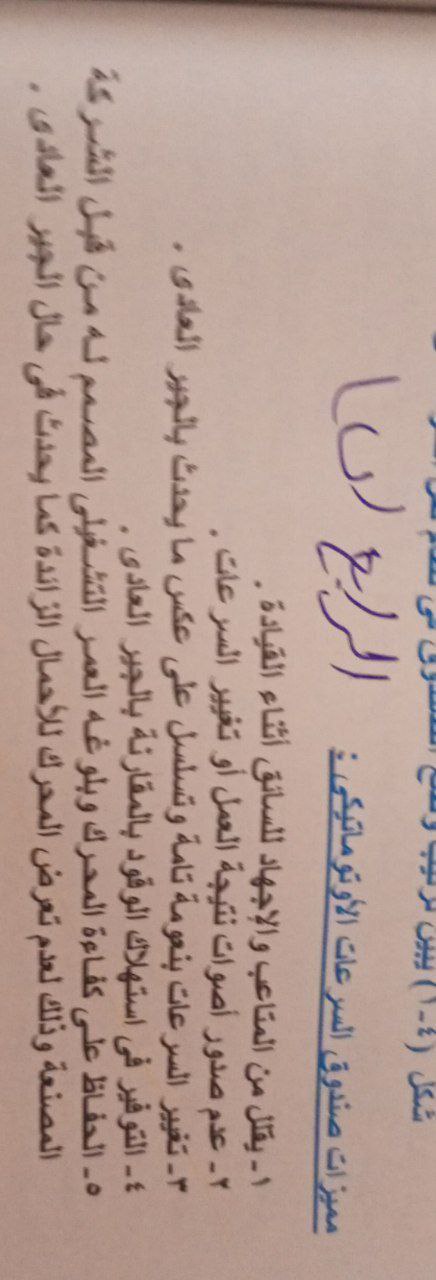 شكل (٤-١) يبين ترتيب وضع الصندوق فى
مميزات صندوق السرعات الأوتوماتيكى :
الرابع
١- يقلل من المتاعب والإجهاد للسائق أثناء القيادة .
٢- عدم صدور أصوات نتيجة العمل أو تغيير السرعات .
٣- تغيير السرعات بنعومة تامة وتسلسل على عكس ما يحدث بالجير العادى .
٤- التوفير فى استهلاك الوقود بالمقارنة بالجير العادى .
٥- الحفاظ على كفاءة المحرك وبلوغه العمر التشغيلى المصمم له من قبل الشركة
المصنعة وذلك لعدم تعرض المحرك للأحمال الزائدة كما يحدث فى حال الجير العادى .